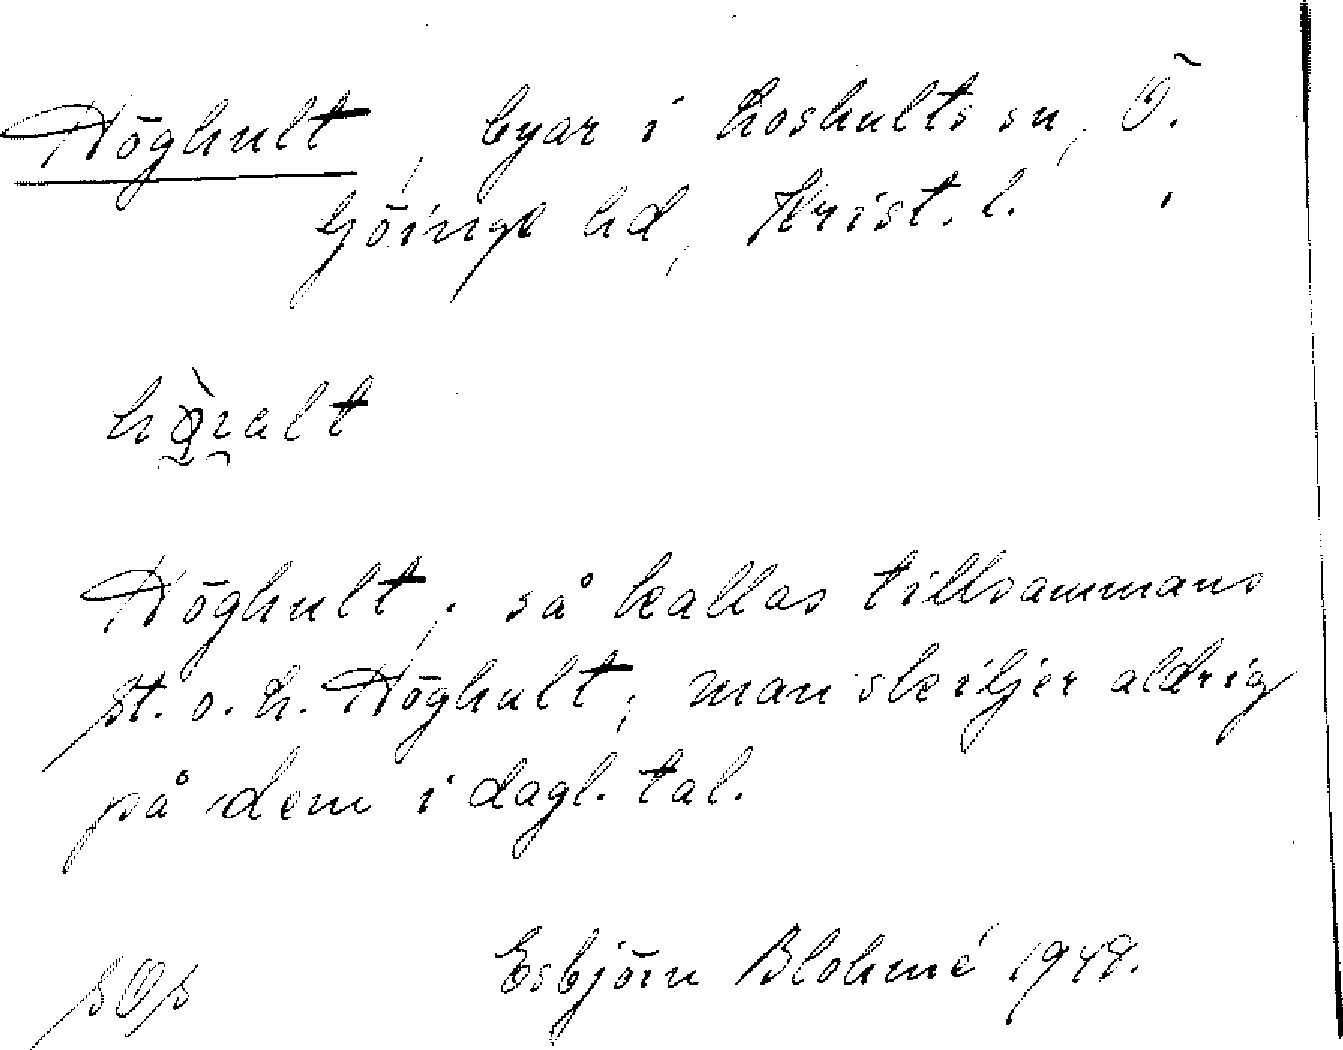 Höghult, byar i Loshults sn, Ö.
Göinge hd, Krist. l.
Höghult, så kallas tillsammans
St. o. L. Höghult; man skiljer aldrig
på dem i dagl. tal.
Esbjörn Blohmé 1949.